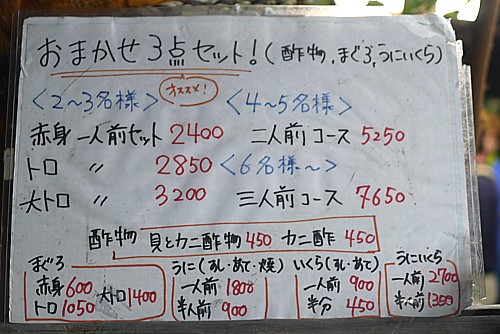 おまかせ3点セット！（酢物、まぐろ、うにいくら）
オススメ！
〈2〜3名様〉
〈4〜5名様〉
赤身 一人前セット 2400
二人前コース 5250
トロ 〃 2850
〈6名様〜〉
大トロ 〃 3200
三人前コース 7650
酢物 貝とカニ酢物 450 カニ酢 450
まぐろ
赤身 600
トロ 1050 大トロ 1400
うに（すし・あて・焼）
一人前 1800
半人前 900
いくら（すし・あて）
一人前 900
半分 450
うにいくら
一人前 2700
半人前 1350